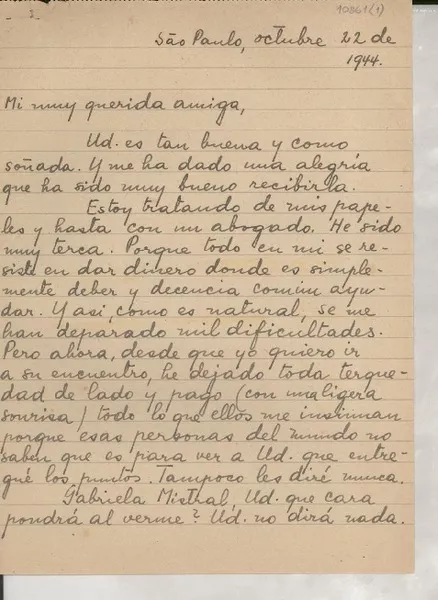 10861(1)
São Paulo, octubre 22 de
1944.
Mi muy querida amiga,
Ud. es tan buena y como
soñada. Y me ha dado una alegría
que ha sido muy bueno recibirla.
Estoy tratando de mis pape-
les y hasta con un abogado. He sido
muy terca. Porque todo en mi se re-
siste en dar dinero donde es simple-
mente deber y decencia común ayu-
dar. Y asi, como es natural, se me
han deparado mil dificultades.
Pero ahora, desde que yo quiero ir
a su encuentro, he dejado toda terque-
dad de lado y pago (con una ligera
sonrisa) todo lo que ellos me insinuan
porque esas personas del mundo no
saben que es para ver a Ud. que entre-
gué los puntos. Tampoco les diré nunca.
Gabriela Mistral, Ud. que cara
pondrá al verme? Ud. no dirá nada.